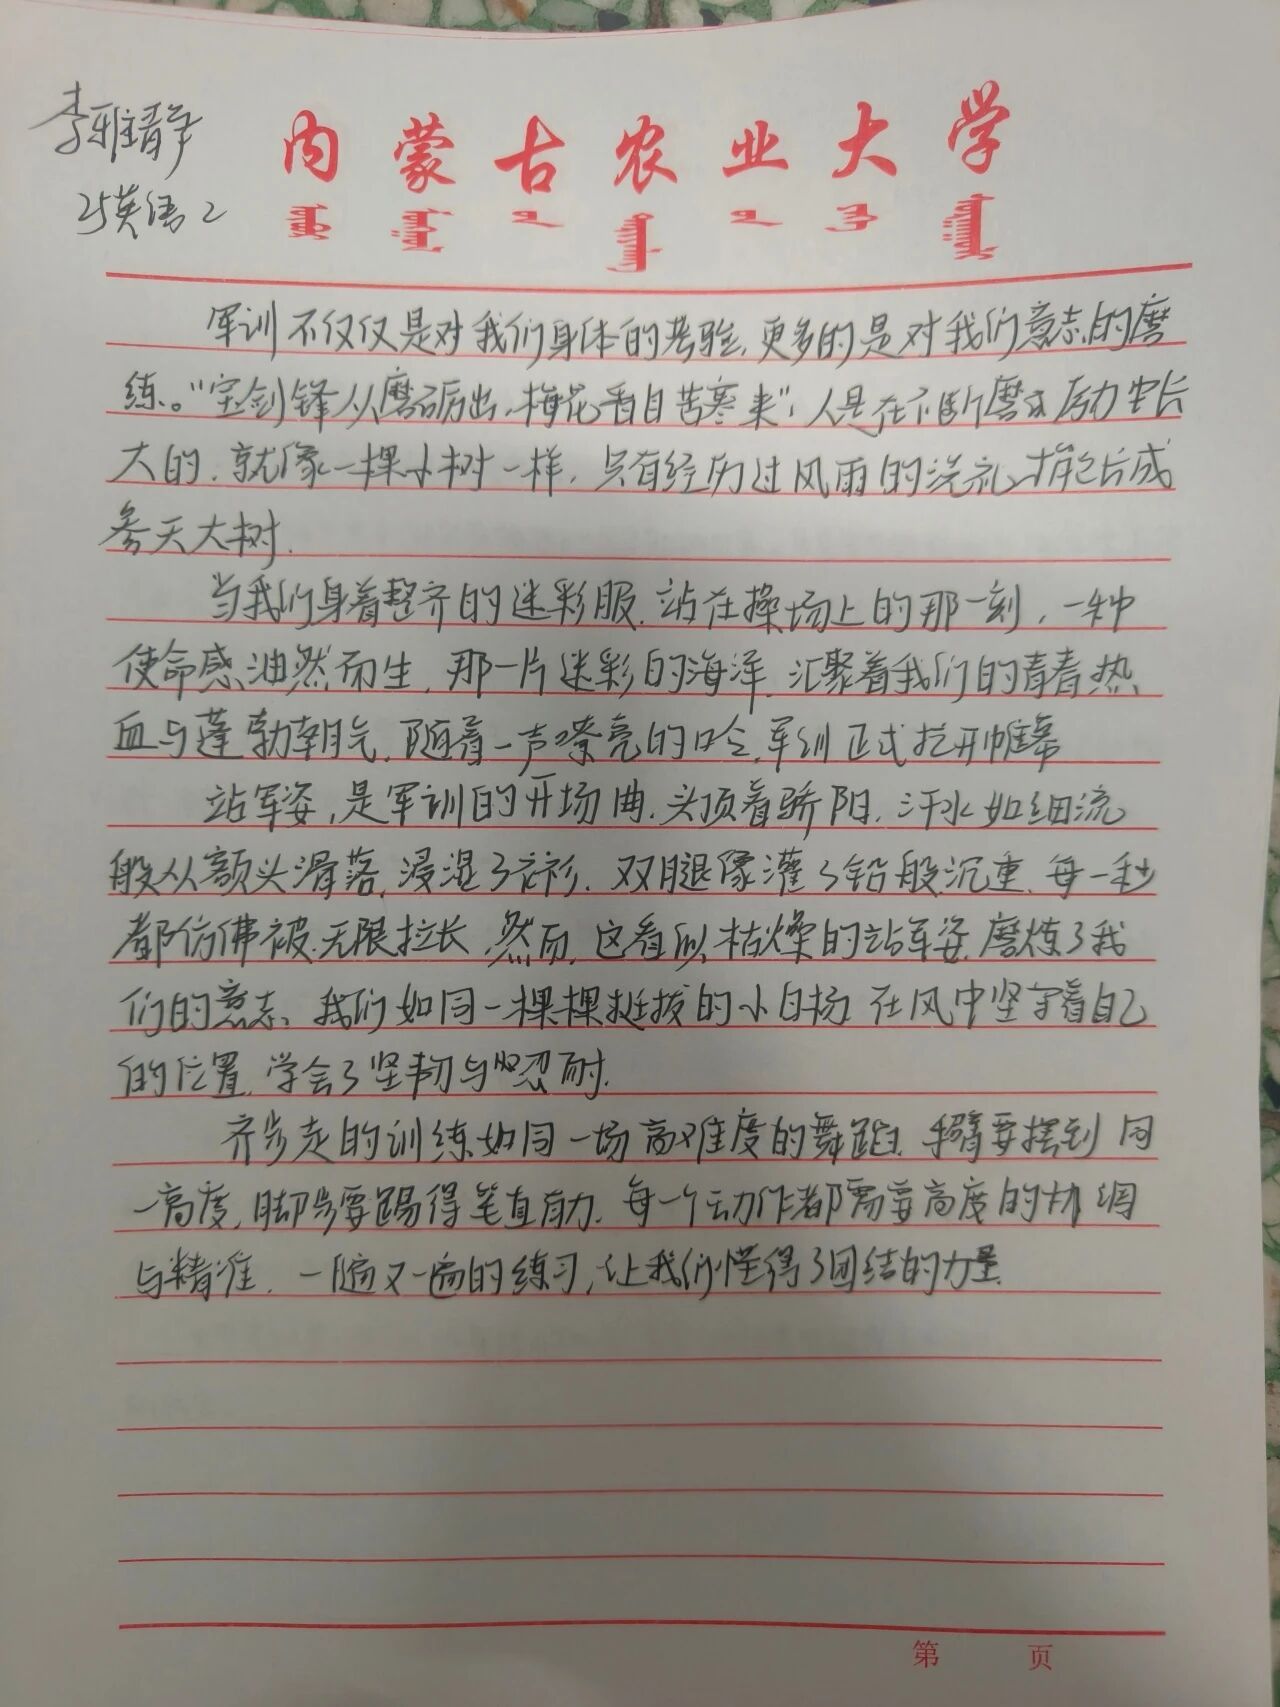 李雅静
25英语2
内蒙古农业大学
军训不仅仅是对我们身体的考验,更多的是对我们意志的磨
练。“宝剑锋从磨砺出,梅花香自苦寒来”,人是在不断磨砺中长
大的,就像一棵小树一样,只有经历过风雨的洗礼才能长成
参天大树.
当我们身着整齐的迷彩服,站在操场上的那一刻,一种
使命感油然而生,那一片迷彩的海洋,汇聚着我们的青春热
血与蓬勃朝气,随着一声嘹亮的口令,军训正式拉开帷幕
站军姿,是军训的开场曲,头顶着骄阳,汗水如细流
般从额头滑落,浸湿了衣衫,双腿像灌了铅般沉重,每一秒
都仿佛被无限拉长,然而,这看似枯燥的站军姿,磨炼了我
们的意志、我们如同一棵棵挺拔的小白杨,在风中坚守着自己
的位置,学会了坚韧与忍耐.
齐步走的训练如同一场高难度的舞蹈,手臂要摆到同
一高度,脚步要踢得笔直有力,每一个动作都需要高度的协调
与精准,一遍又一遍的练习,让我们懂得了团结的力量.
第 页